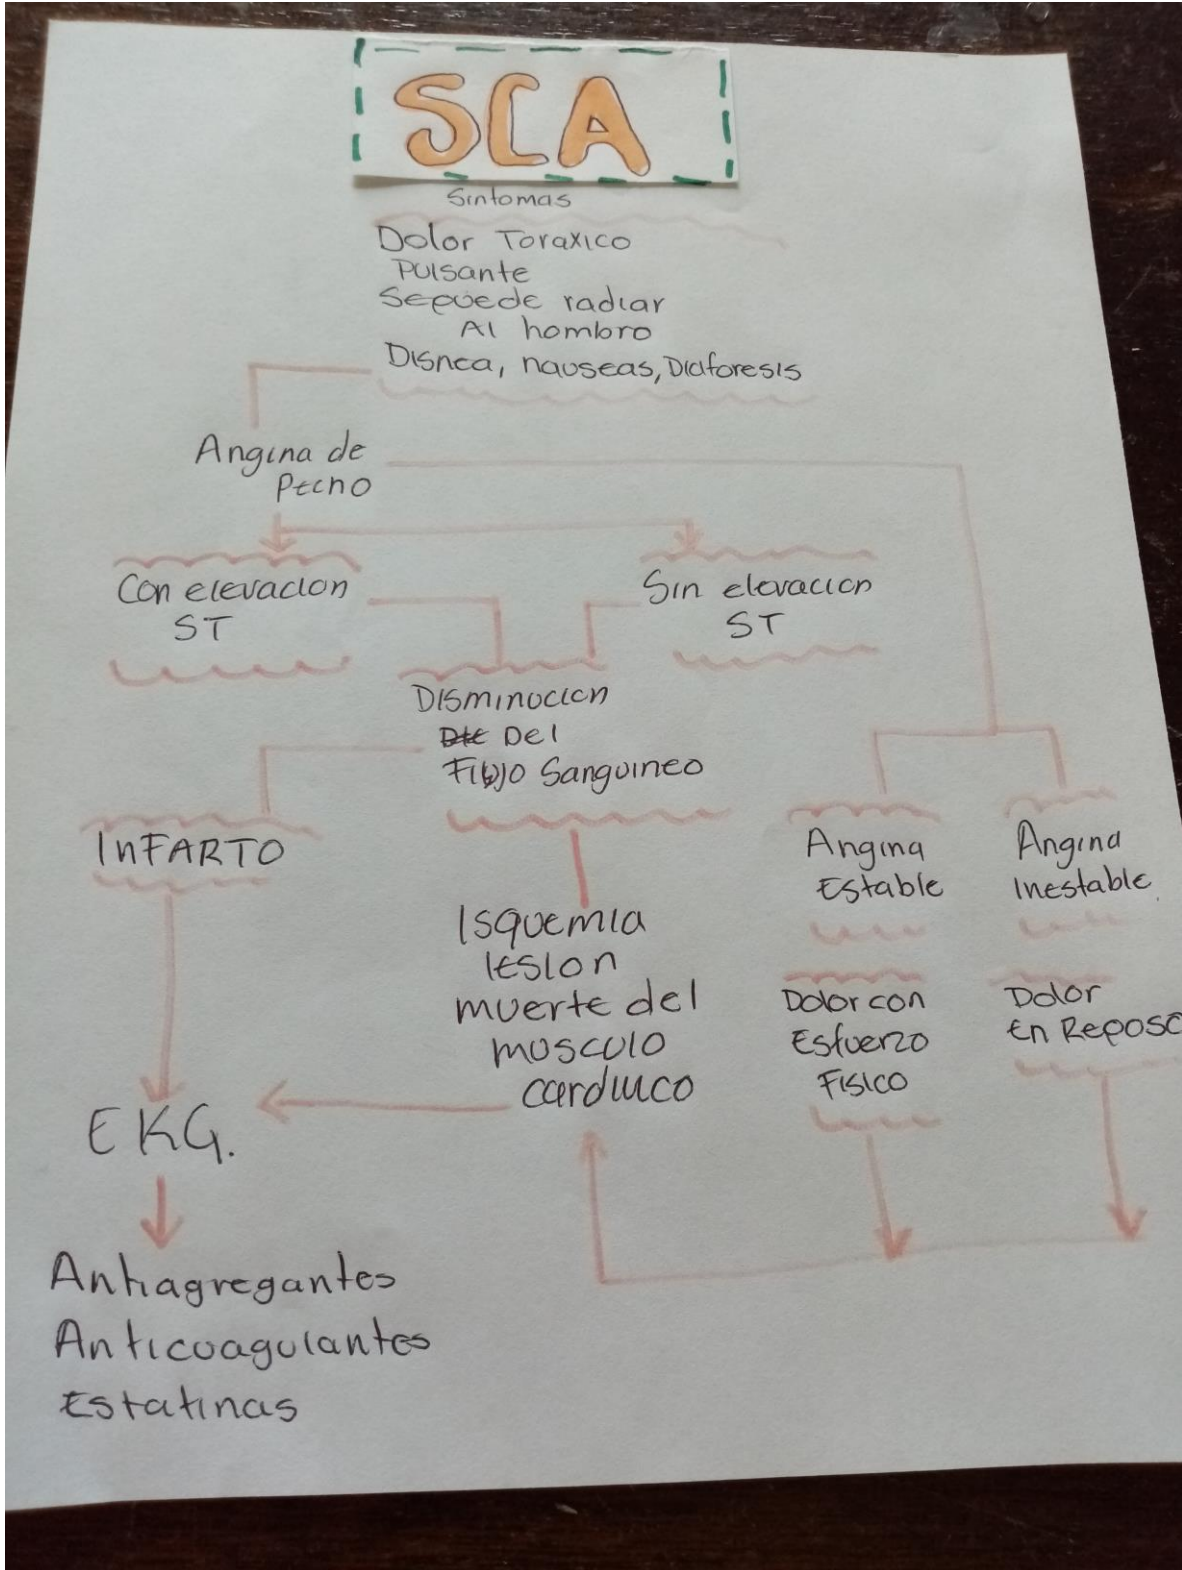 SCA
Sintomas
Dolor Toraxico
Pulsante
Sepuede radiar
Al hombro
Disnea, nauseas, Diaforesis
Angina de
Pecho
Con elevacion
ST
Sin elevacion
ST
Disminucion
Del
Flujo Sanguineo
InFARTO
Angina
Estable
Angina
Inestable.
Isquemia
lesion
muerte del
musculo
cardiaco
Dolor con
Esfuerzo
Fisico
Dolor
En Reposo
EKG.
Antiagregantes
Anticoagulantes
Estatinas